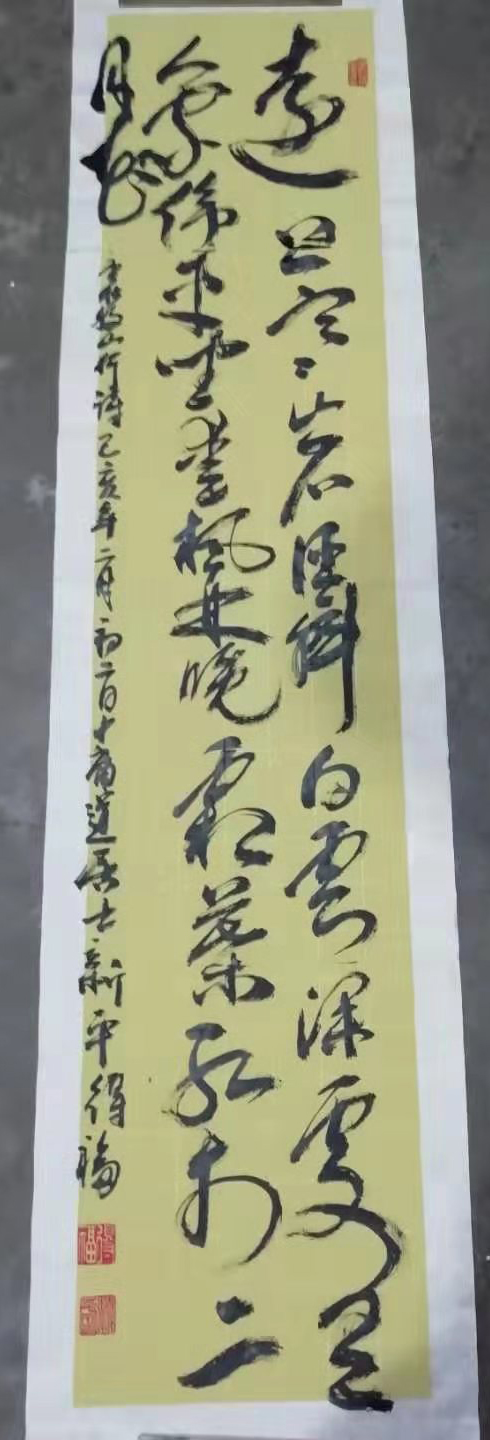 遠上寒山石徑斜白雲深處有
人家停車坐愛楓林晚霜葉紅於二
月花
山行詩己亥年二月初二日居士新平得福